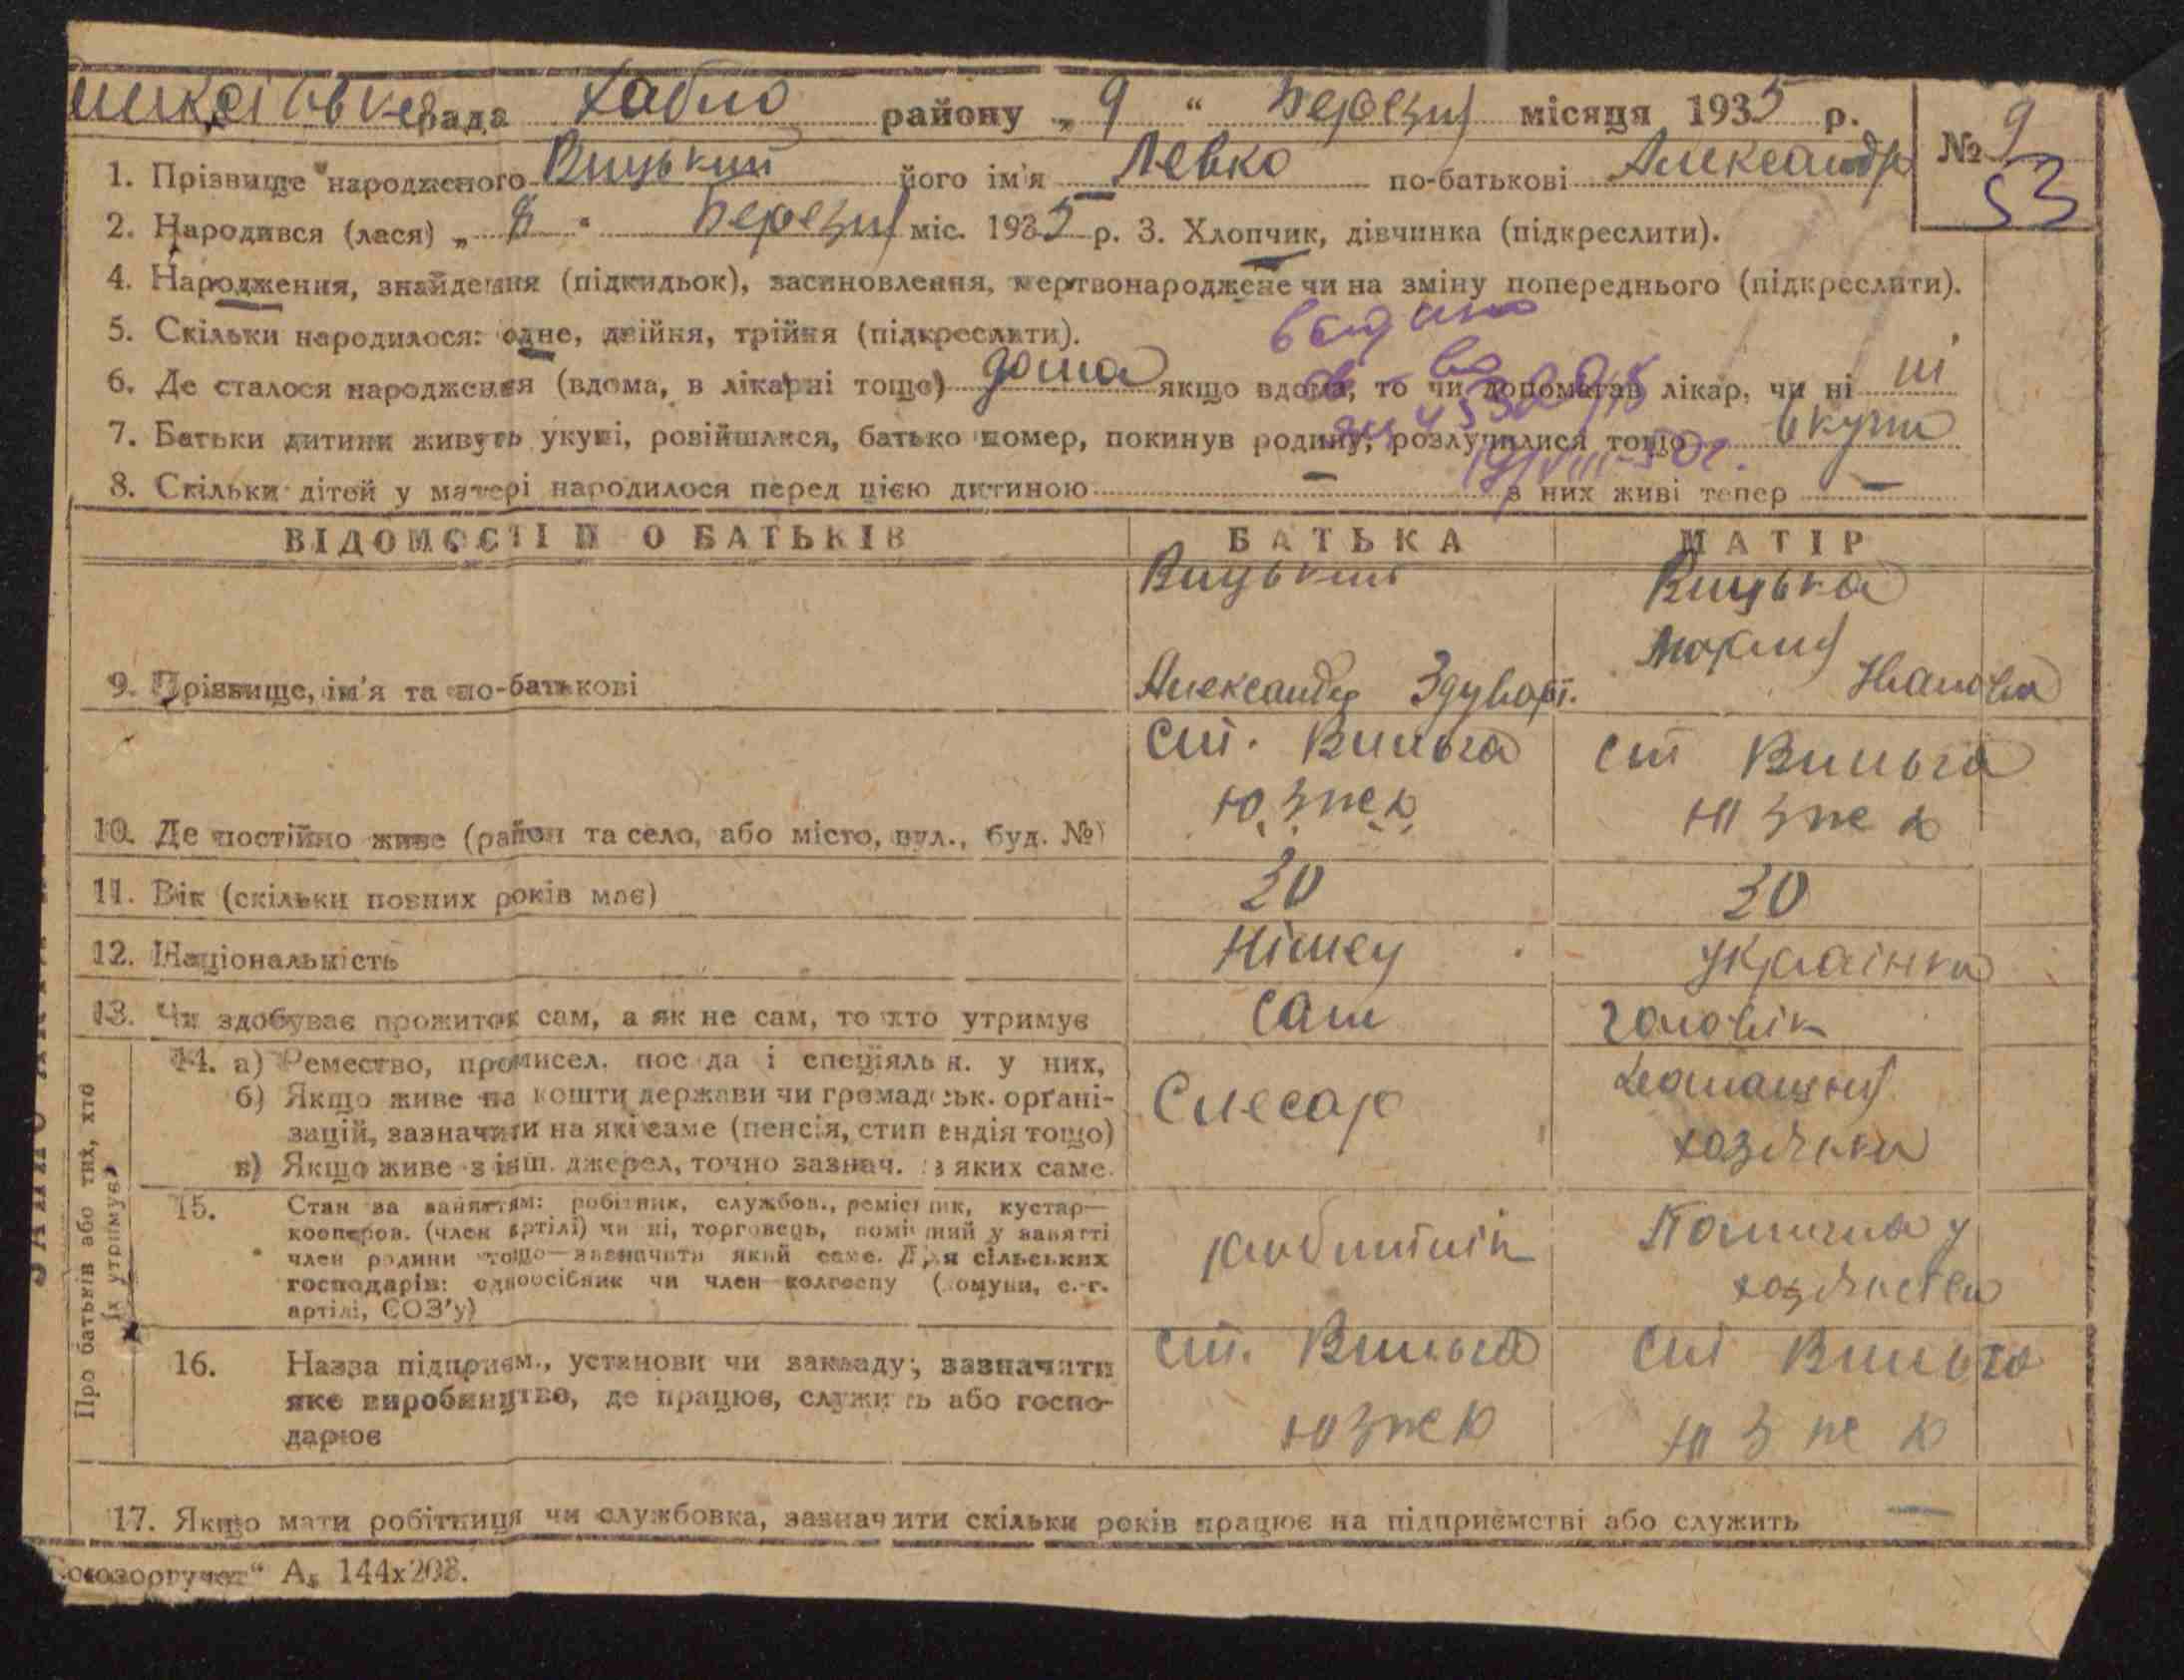 рада Хабно району „ 9 “ Березня місяця 1935 р.
№ 9
53
1. Прізвище народженого Вицький його ім'я Левко по-батькові Александр
2. Народився (лася) „ 8 “ Березня міс. 1935 р. 3. Хлопчик, дівчинка (підкреслити).
4. Народження, знайдення (підкидьок), засиновлення, мертвонароджене чи на зміну попереднього (підкреслити).
5. Скільки народилося: одне, двійня, трійня (підкреслити).
6. Де сталося народження (вдома, в лікарні тощо) дома якщо вдома, то чи допомагав лікар, чи ні ні
7. Батьки дитини живуть укупі, розійшлися, батько помер, покинув родину, розлучилися тощо вкупи
8. Скільки дітей у матері народилося перед цією дитиною — з них живі тепер —
ВІДОМОСТІ ПРО БАТЬКІВ БАТЬКА МАТІР
Вицький Вицька
9. Прізвище, ім'я та по-батькові Александр Здуварт. Марина Иванов
ст. Вильча ст Вильча
10. Де постійно живе (район та село, або місто, вул., буд. №) ЮЗжед ЮЗжед
11. Вік (скільки повних років має) 20 20
12. Національність Німец Українка
13. Чи здобуває прожиток сам, а як не сам, то хто утримує сам чоловік
Про батьків або тих, хто їх утримує
14. а) Ремество, промисел. посада і спеціяльн. у них,
б) Якщо живе на кошти держави чи громадськ. орґані-
зацій, зазначити на які саме (пенсія, стипендія тощо)
в) Якщо живе з інш. джерел, точно зазнач. з яких саме.
Слесар Домашня
хозяйка
15. Стан за заняттям: робітник, службов., ремісник, кустар—
коопе­ров. (член артілі) чи ні, торговець, помічний у занятті
член родини тощо—зазначити який саме. Для сільських
господарів: одноосібник чи член колгоспу (комуни, с.-г.
артілі, СОЗ'у)
Помична у
хозяйстве
16. Назва підприєм., установи чи закладу; зазначити
яке виробництво, де працює, служить або госпо-
дарює
ст. Вильча ст Вильча
ЮЗжед ЮЗжед
17. Якщо мати робітниця чи службовка, зазначити скільки років працює на підприємстві або служить —
Союзоргучет“ А₅ 144х203.